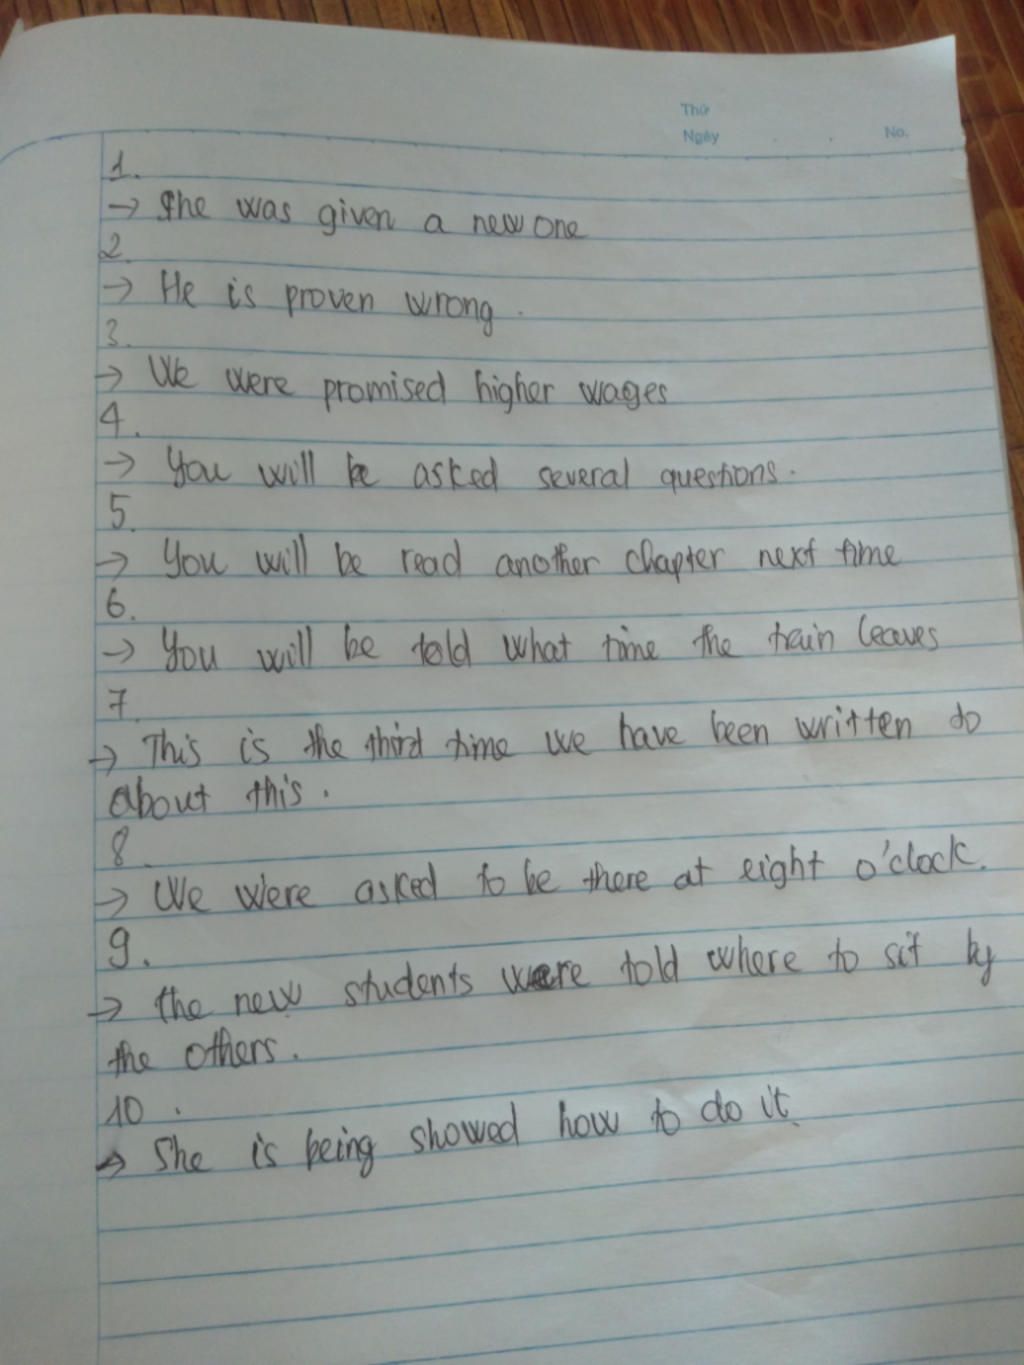 Thứ
Ngày . . No.
1.
→ She was given a new one
2.
→ He is proven wrong.
3.
→ We were promised higher wages
4.
→ You will be asked several questions.
5.
→ You will be read another chapter next time
6.
→ You will be told what time the train leaves
7.
→ This is the third time we have been written to
about this.
8.
→ We were asked to be there at eight o'clock.
9.
→ the new students were told where to sit by
the others.
10.
→ She is being showed how to do it.